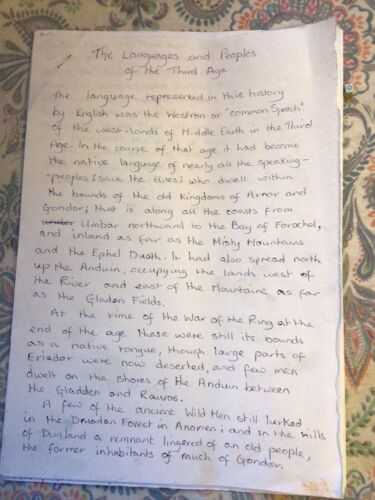 The Languages and Peoples
of the Third Age
The language represented in this history
by English was the Westron or "common Speech"
of the west-lands of Middle Earth in the Third
Age. In the course of that age it had become
the native language of nearly all the speaking-
-peoples (save the Elves) who dwelt within
the bounds of the old kingdoms of Arnor and
Gondor; that is along all the coasts from
Umbar northward to the Bay of Forochel,
and inland as far as the Misty Mountains
and the Ephel Duath. It had also spread north
up the Anduin, occupying the lands west of
the River and east of the Mountains as far
as the Gladen Fields.
At the time of the War of the Ring at the
end of the age these were still its bounds
as a native tongue, though large parts of
Eriador were now deserted, and few men
dwelt on the shores of the Anduin between
the Gladden and Rauros.
A few of the ancient Wild Men still lurked
in the Druadan Forest in Anorien; and in the hills
of Dunland a remnant lingered of an old people,
the former inhabitants of much of Gondor.